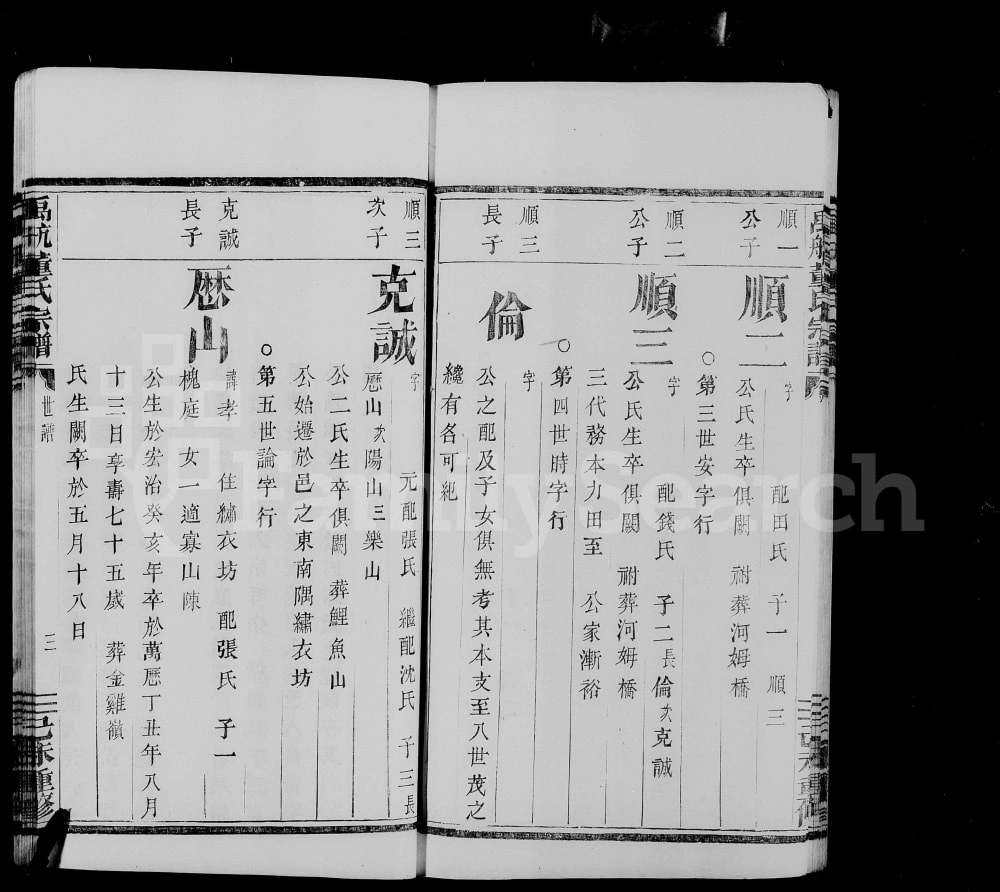 順一
公子
順二
字　配田氏　子一　順三
公氏生卒俱闕　祔葬河姆橋
○第三世安字行
順二
公子
順三
字　配錢氏　子二長倫次克誠
公氏生卒俱闕　祔葬河姆橋
三代務本力田至　公家漸裕
○第四世時字行
順三
長子
倫
字
公之配及子女俱無考其本支至八世茂之
纔有名可紀
順三
次子
克誠
字　元配張氏　繼配沈氏　子三長
厯山次陽山三樂山
公二氏生卒俱闕　葬鯉魚山
公始遷於邑之東南隅繡衣坊
○第五世論字行
克誠
長子
厯山
諱孝　住繡衣坊　配張氏　子一
槐庭　女一適寡山陳
公生於宏治癸亥年卒於萬厯丁丑年八月
十三日享壽七十五歲　葬金雞嶺
氏生闕卒於五月十八日
禹航董氏宗譜
世譜
三
己未重修
FamilySearch